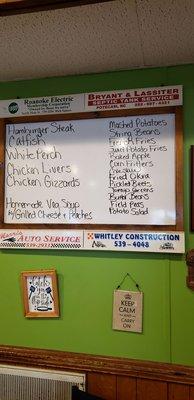 Roanoke Electric
BRYANT & LASSITER
SEPTIC TANK SERVICE
POTECASI, NC
Hamburger Steak
Catfish
White Perch
Chicken Livers
Chicken Gizzards
Homemade Veg Soup
w/Grilled Cheese + Peaches
Mashed Potatoes
String Beans
French Fries
Sweet Potato Fries
Baked Apple
Corn Fritters
Coleslaw
Fried Okra
Pickled Beets
Turnip Greens
Butter Beans
Field Peas
Potato Salad
AUTO SERVICE
539-2933
WHITLEY CONSTRUCTION
539-4048
KEEP
CALM
AND